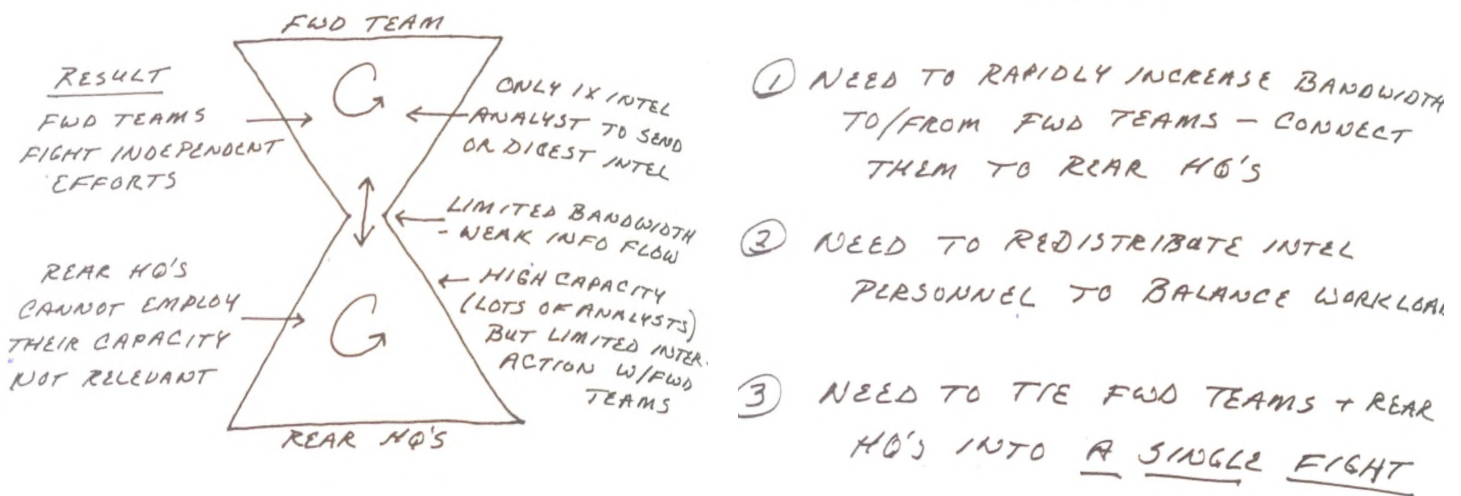 FWD TEAM
RESULT
FWD TEAMS
FIGHT INDEPENDENT
EFFORTS
ONLY 1X INTEL
ANALYST TO SEND
OR DIGEST INTEL
LIMITED BANDWIDTH
- WEAK INFO FLOW
REAR HQ'S
CANNOT EMPLOY
THEIR CAPACITY
NOT RELEVANT
HIGH CAPACITY
(LOTS OF ANALYSTS)
BUT LIMITED INTER-
ACTION W/FWD
TEAMS
REAR HQ'S
1 NEED TO RAPIDLY INCREASE BANDWIDTH
TO/FROM FWD TEAMS - CONNECT
THEM TO REAR HQ'S
2 NEED TO REDISTRIBUTE INTEL
PERSONNEL TO BALANCE WORKLOA
3 NEED TO TIE FWD TEAMS + REAR
HQ'S INTO A SINGLE FIGHT